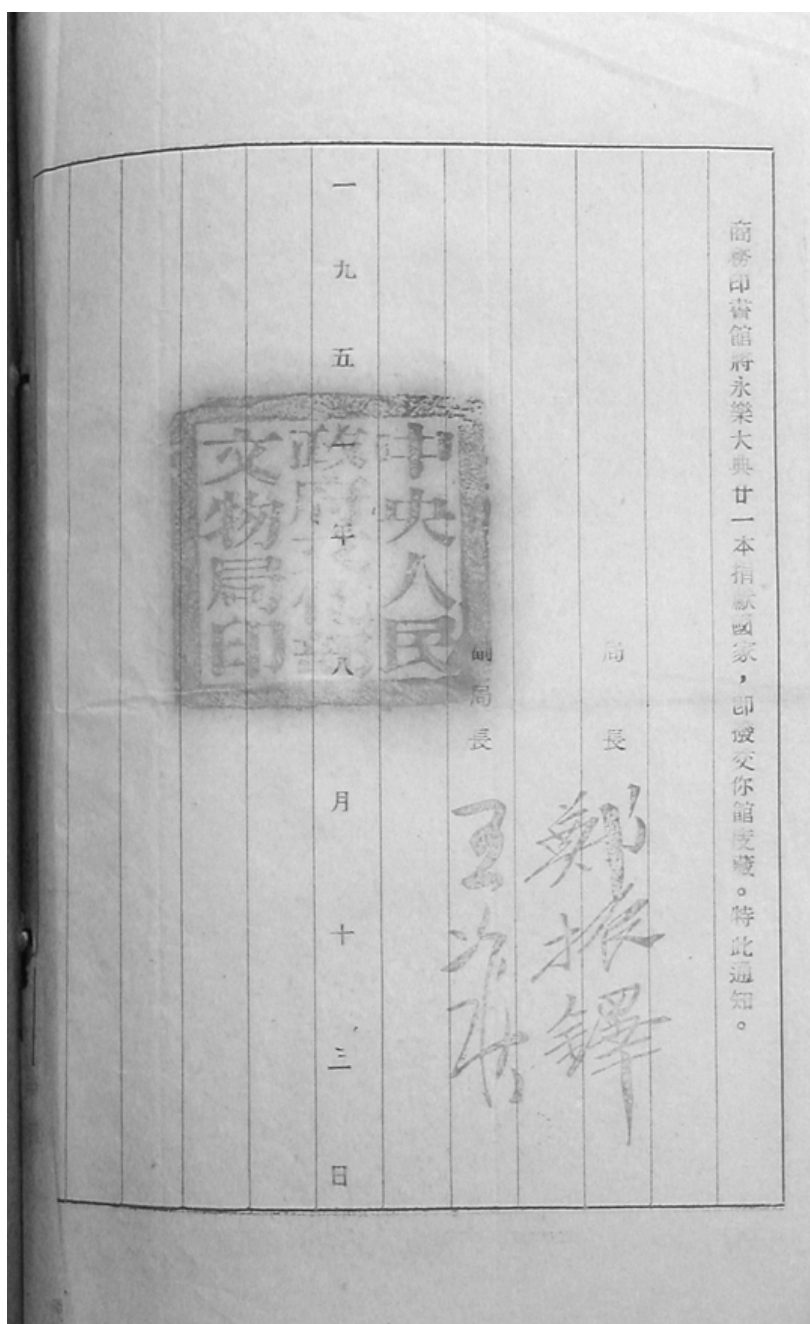 商務印書館將永樂大典廿一本捐獻國家，即撥交你館庋藏。特此通知。
局長 鄭振鐸
副局長 王冶秋
一九五一年八月十三日
中央人民
政府文化部
文物局印